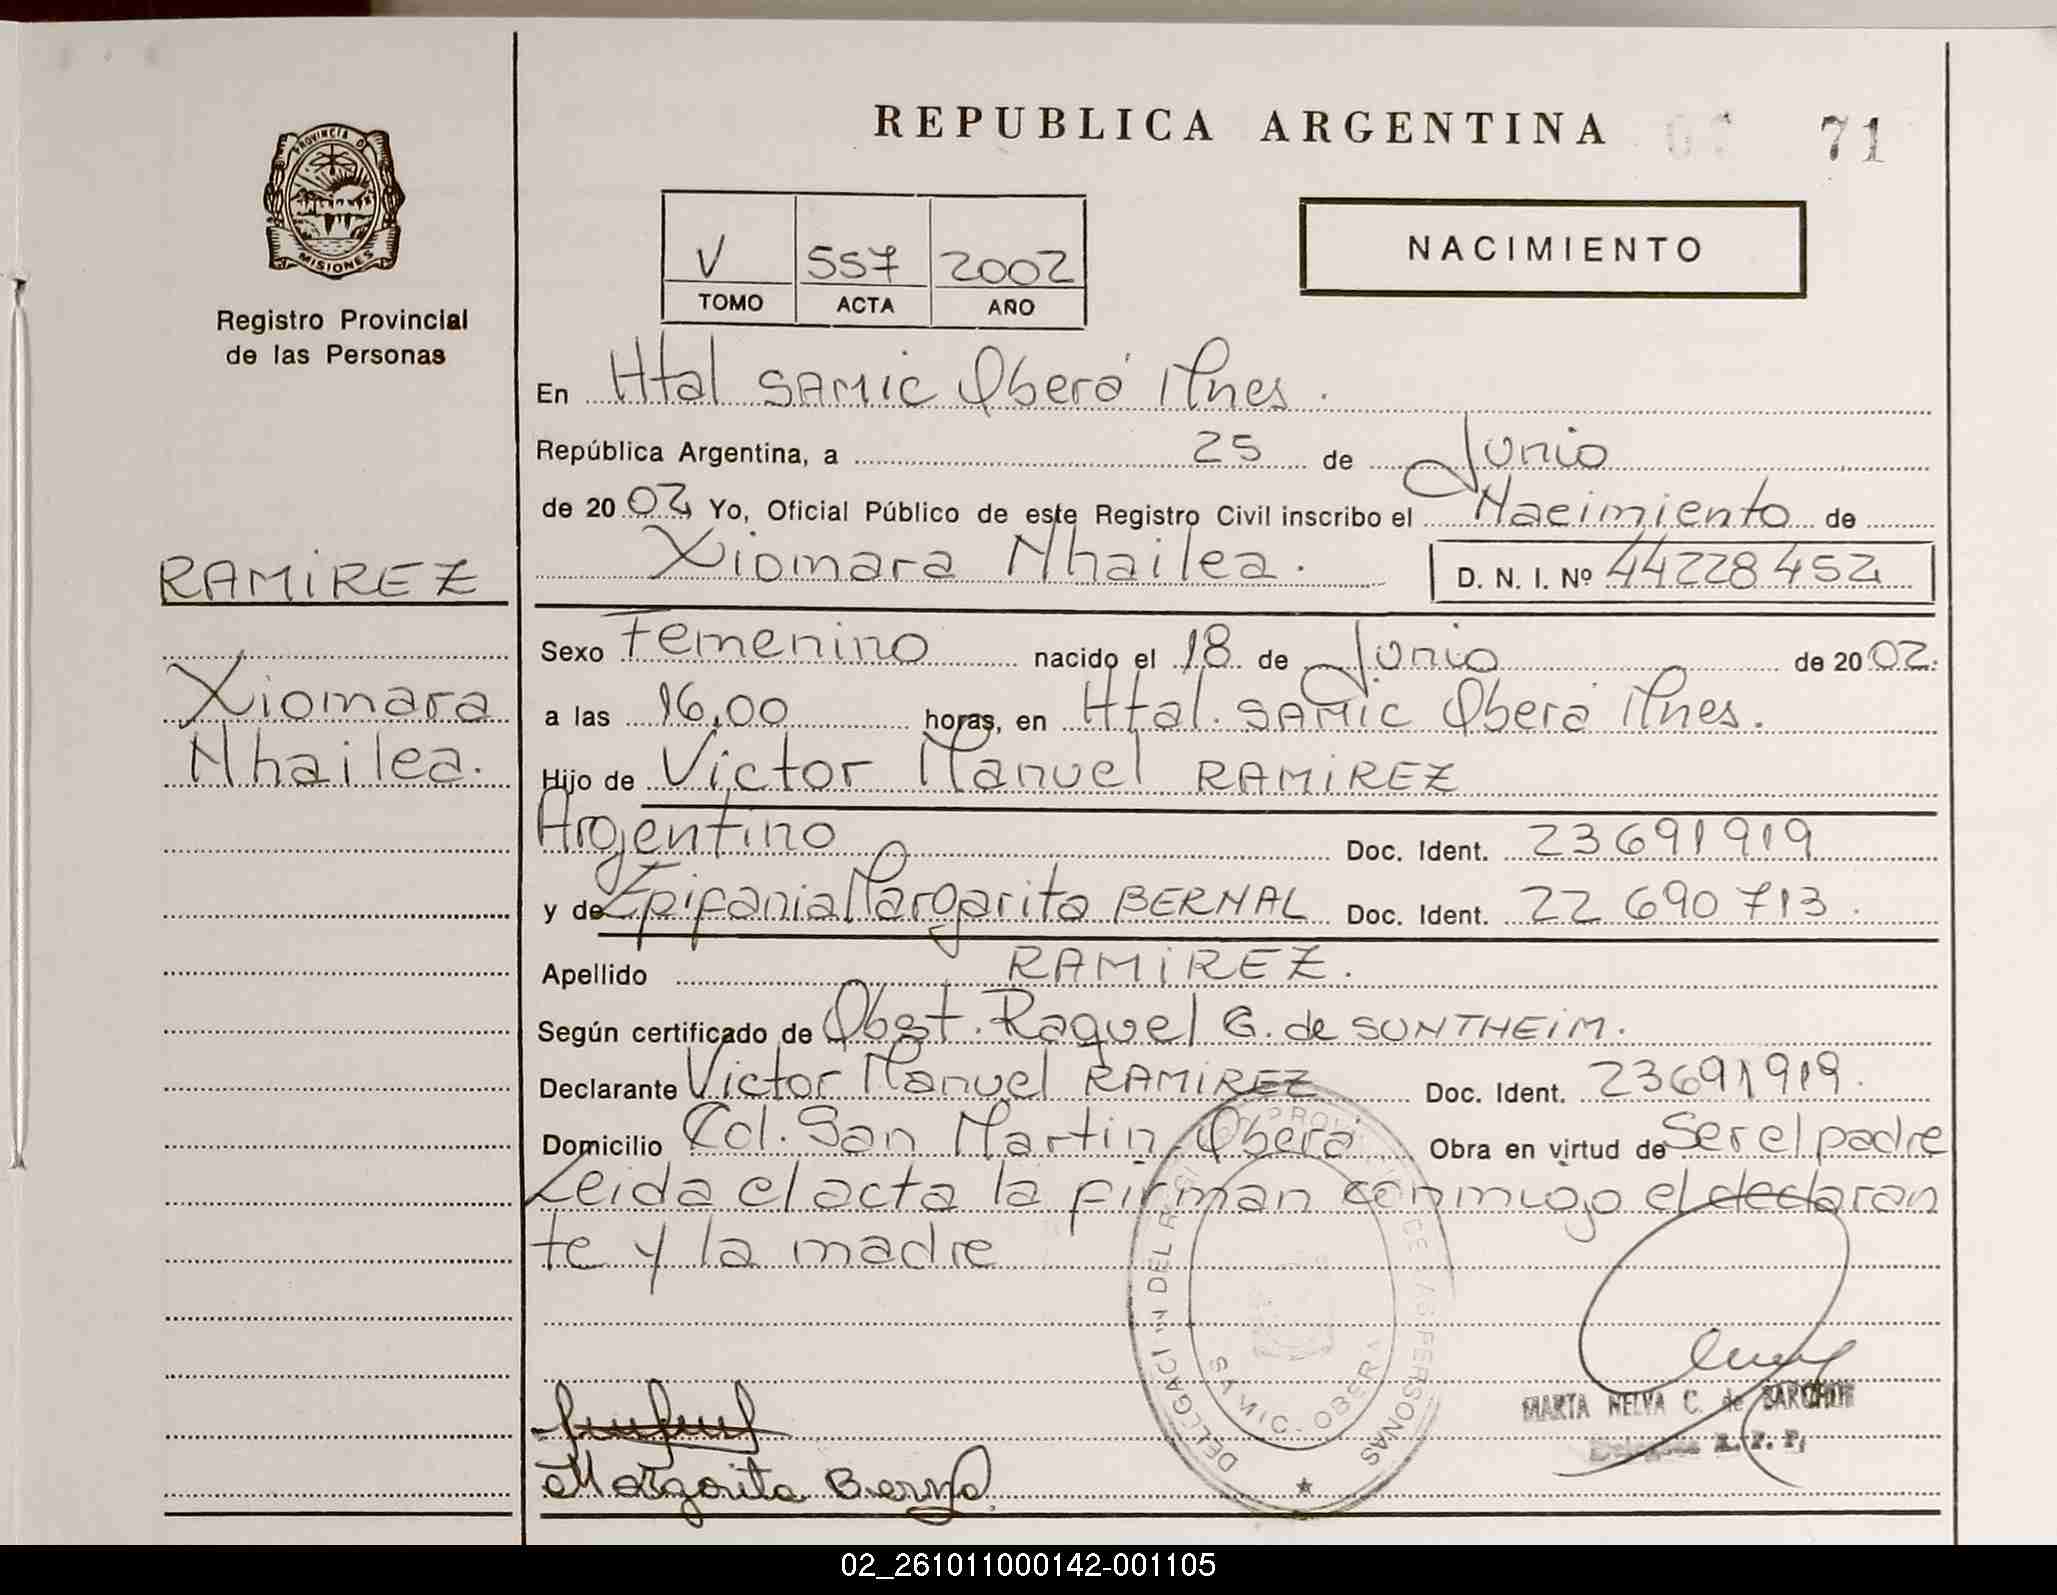 REPUBLICA ARGENTINA
71
PROVINCIA D
MISIONES
Registro Provincial
de las Personas
V 557 2002
TOMO ACTA AÑO
NACIMIENTO
En Htal SAMIC Oberá Mnes.
República Argentina, a 25 de Junio
de 2002 Yo, Oficial Público de este Registro Civil inscribo el Nacimiento de
Xiomara Nhailea. D. N. I. Nº 44228452
RAMIREZ
Xiomara
Nhailea.
Sexo Femenino nacido el 18 de Junio de 2002.
a las 16,00 horas, en Htal. SAMIC Oberá Mnes.
Hijo de Victor Manuel RAMIREZ
Argentino Doc. Ident. 23691919
y de Epifania Margarita BERNAL Doc. Ident. 22 690 713.
Apellido RAMIREZ.
Según certificado de Obst. Raquel G. de SUNTHEIM.
Declarante Victor Manuel RAMIREZ Doc. Ident. 23691919.
Domicilio Col. San Martin Oberá Obra en virtud de Ser el padre
Leida el acta la firman conmigo el declaran
te y la madre
SAMIC - OBERA
Margarita Bernal
MARTA NELVA C. de
R. P. P.
02_261011000142-001105